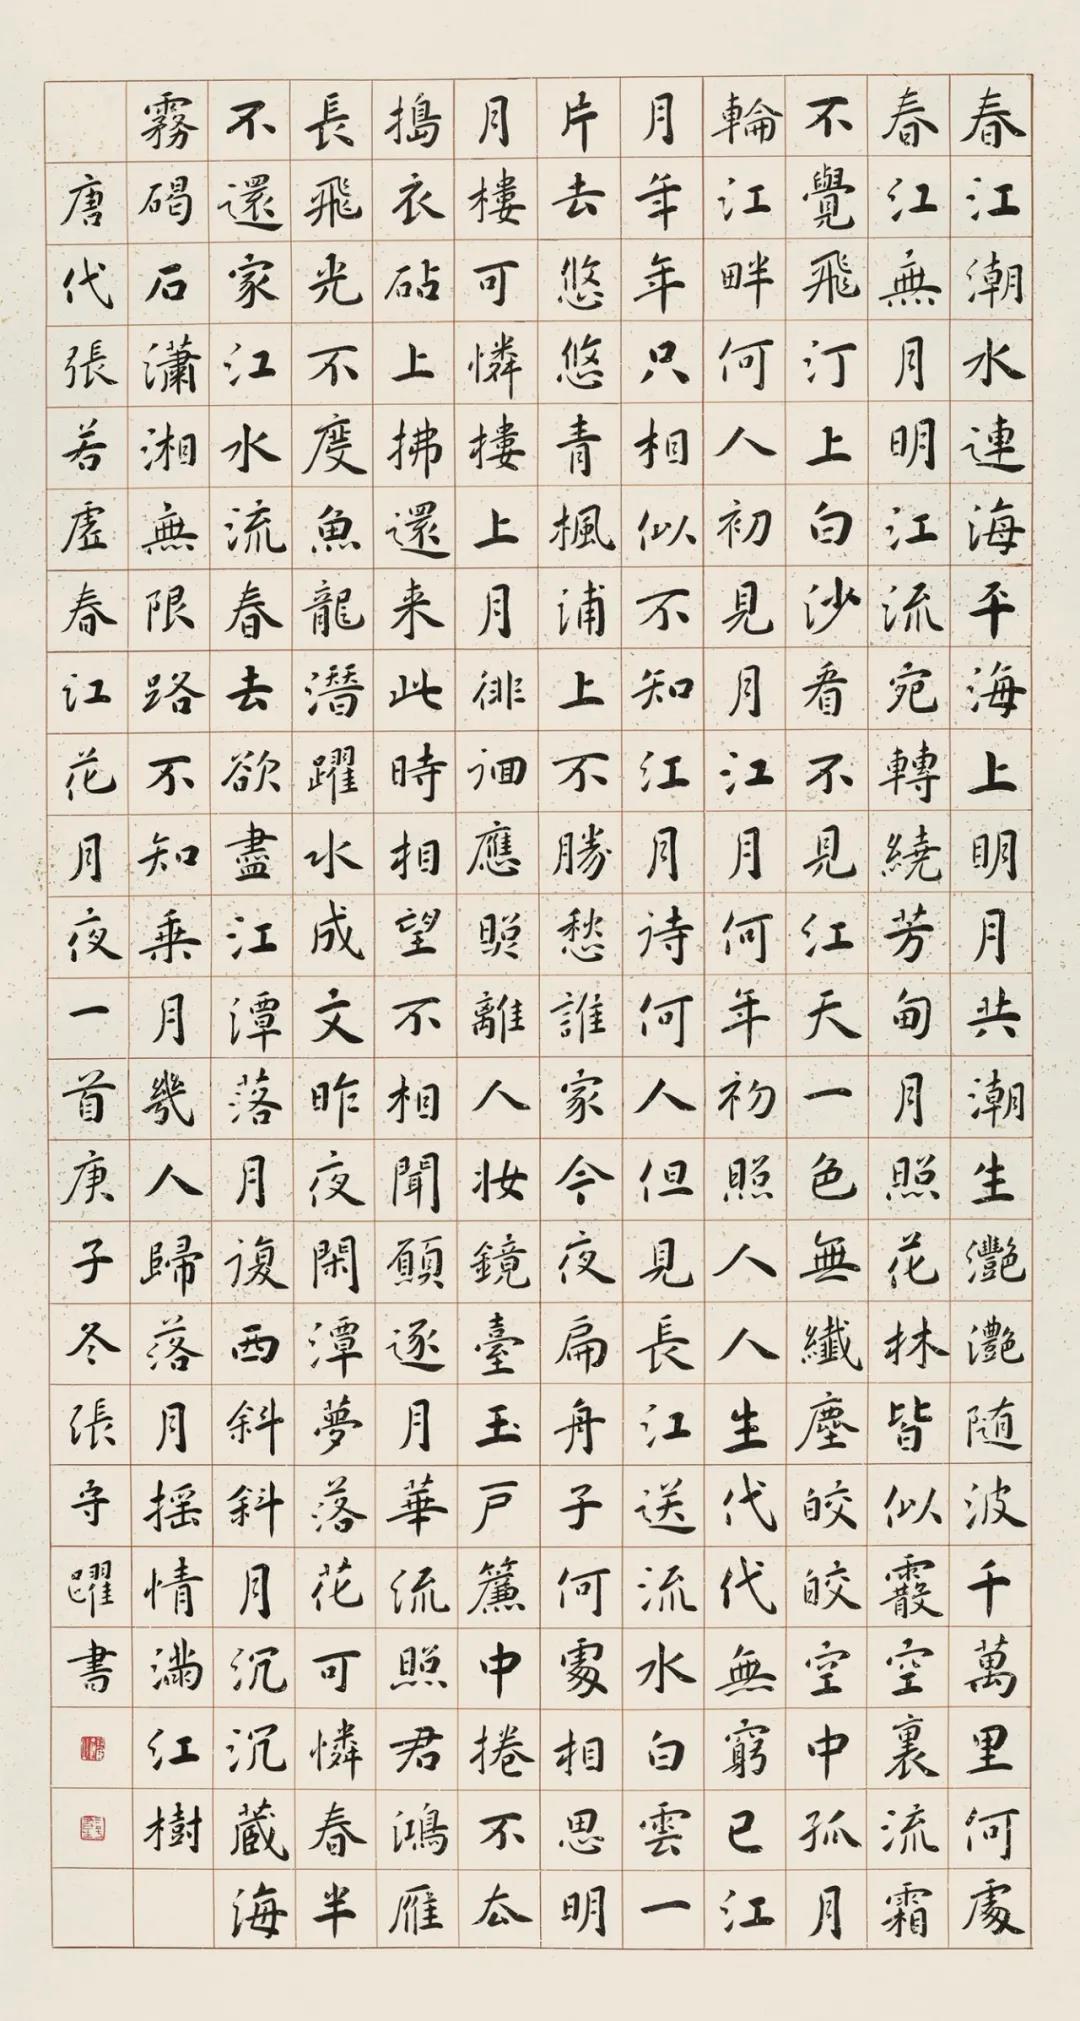 春江潮水連海平海上明月共潮生灩灩随波千萬里何處
春江無月明江流宛轉繞芳甸月照花林皆似霰空裏流霜
不覺飛汀上白沙看不見江天一色無纖塵皎皎空中孤月
輪江畔何人初見月江月何年初照人人生代代無窮已江
月年年只相似不知江月待何人但見長江送流水白雲一
片去悠悠青楓浦上不勝愁誰家今夜扁舟子何處相思明
月樓可憐樓上月徘徊應照離人妝鏡臺玉戶簾中捲不去
搗衣砧上拂還来此時相望不相聞願逐月華流照君鴻雁
長飛光不度魚龍潛躍水成文昨夜閑潭夢落花可憐春半
不還家江水流春去欲盡江潭落月復西斜斜月沉沉藏海
霧碣石瀟湘無限路不知乘月幾人歸落月摇情滿江樹
唐代張若虛春江花月夜一首庚子冬張守躍書